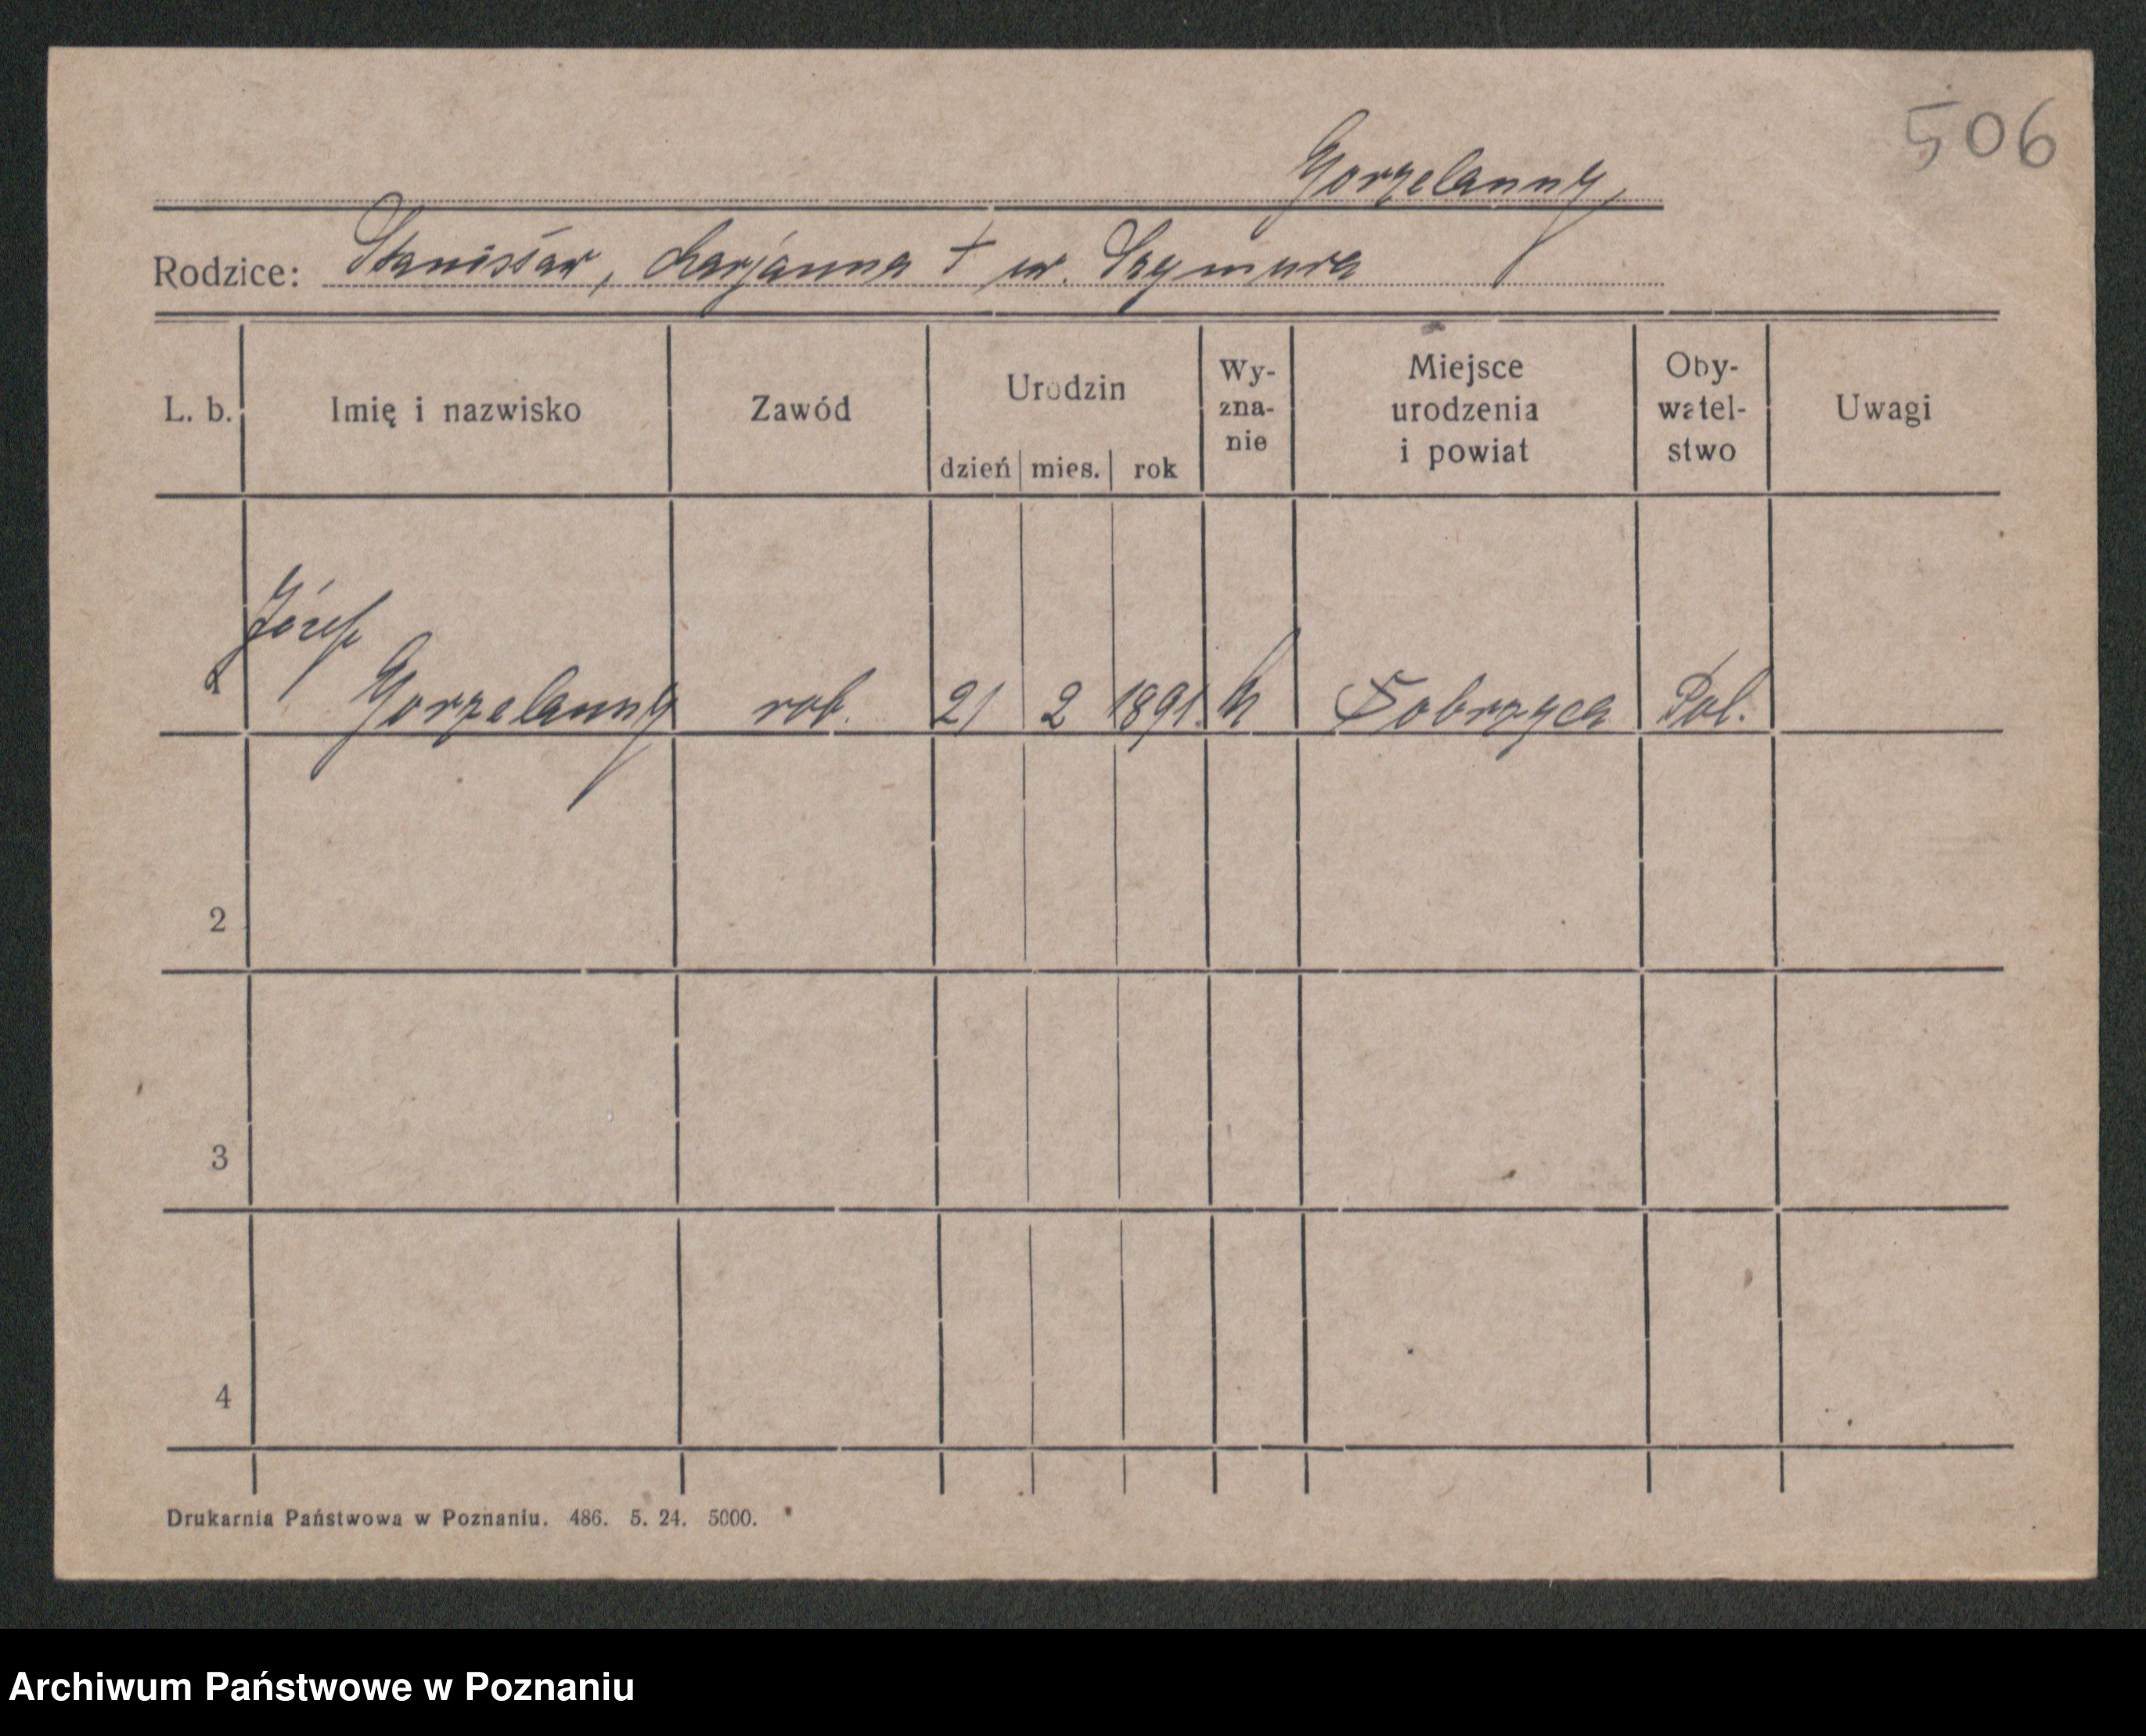 506
Gorzelanny,
Rodzice: Stanisław, Marjanna † ur. Szymura
L. b. Imię i nazwisko Zawód Urodzin Wy- Miejsce Oby- Uwagi
zna- urodzenia watel-
dzień mies. rok nie i powiat stwo
Józef
Gorzelanny rob. 21 2 1891. k Dobrzyca Pol.
2
3
4
Drukarnia Państwowa w Poznaniu. 486. 5. 24. 5000.
Archiwum Państwowe w Poznaniu